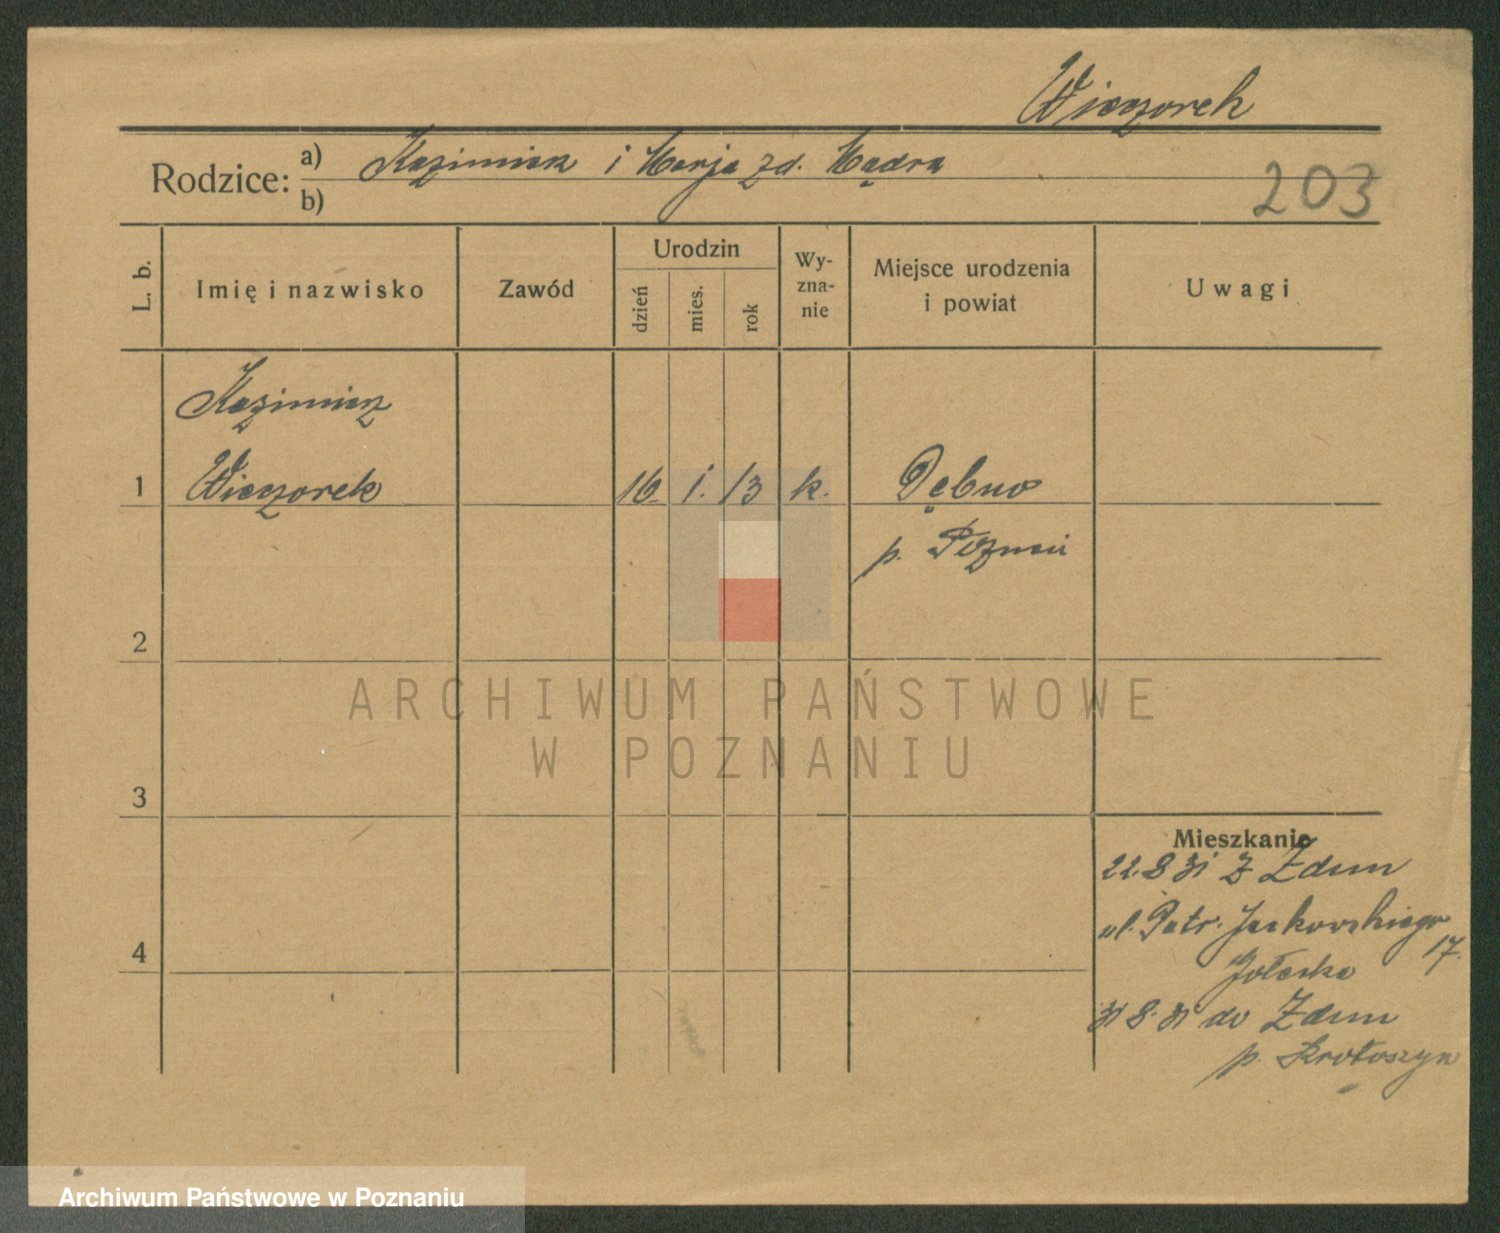 Wieczorek
Rodzice: a) Kazimierz i Marja zd. Mądra
b)
203
L. b.
Imię i nazwisko
Zawód
Urodzin
dzień
mies.
rok
Wy-
zna-
nie
Miejsce urodzenia
i powiat
Uwagi
Kazimierz
1 Wieczorek 16 1. 13 k. Dębno
p. Poznań
2
3
4
Mieszkanie
22.8 31 z Zdun
ul. Patr. Jackowskiego
17.
31 8.31 do Zdun
p. Krotoszyn
ARCHIWUM PAŃSTWOWE
W POZNANIU
Archiwum Państwowe w Poznaniu